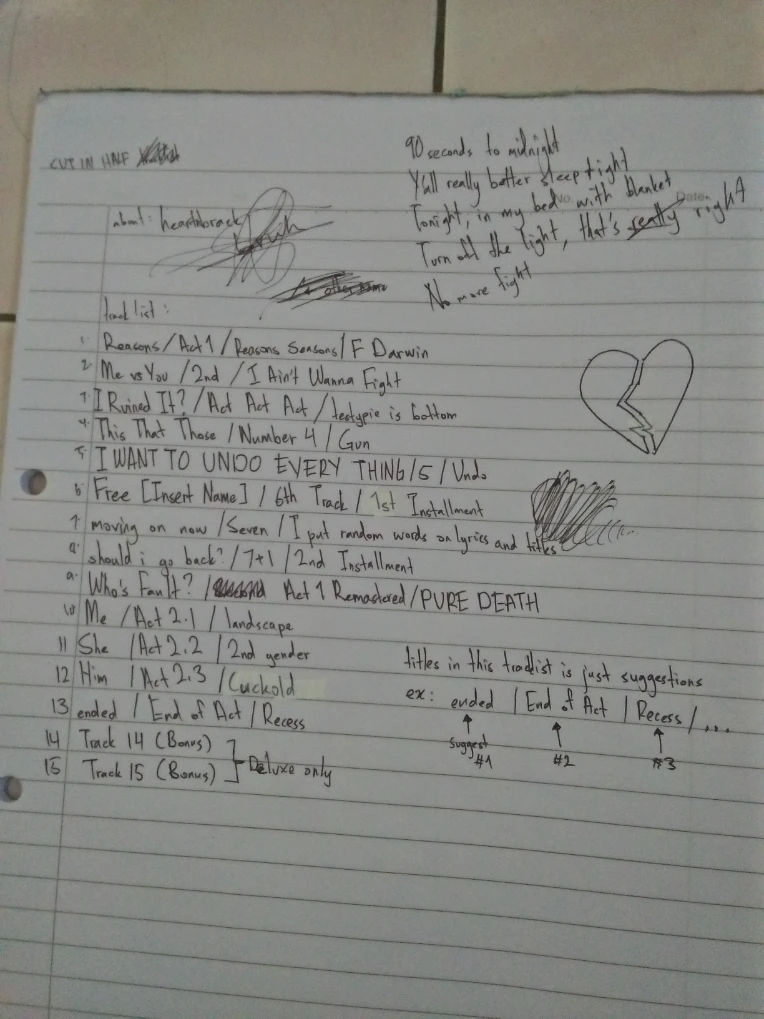 CUT IN HALF
about: heartbrack
90 seconds to midnight
Y'all really better sleep tight
Tonight, in my bed with blanket
Turn off the light, that's really right
No more fight
No.
Date.
track list:
1. Reasons / Act 1 / Reasons Seasons / F Darwin
2. Me vs You / 2nd / I Ain't Wanna Fight
3. I Ruined It? / Act Act Act / is bottom
4. This That Those / Number 4 / Gun
5. I WANT TO UNDO EVERY THING / 5 / Undo
6. Free [Insert Name] / 6th Track / 1st Installment
7. moving on now / Seven / I put random words on lyrics and titles
8. should i go back? / 7+1 / 2nd Installment
9. Who's Fault? / Act 1 Remastered / PURE DEATH
10. Me / Act 2.1 / landscape
11 She / Act 2.2 / 2nd gender
12 Him / Act 2.3 / Cuckold
13 ended / End of Act / Recess
14 Track 14 (Bonus)
15 Track 15 (Bonus)
Deluxe only
titles in this tracklist is just suggestions
ex: ended / End of Act / Recess / ...
suggest #1
#2
#3